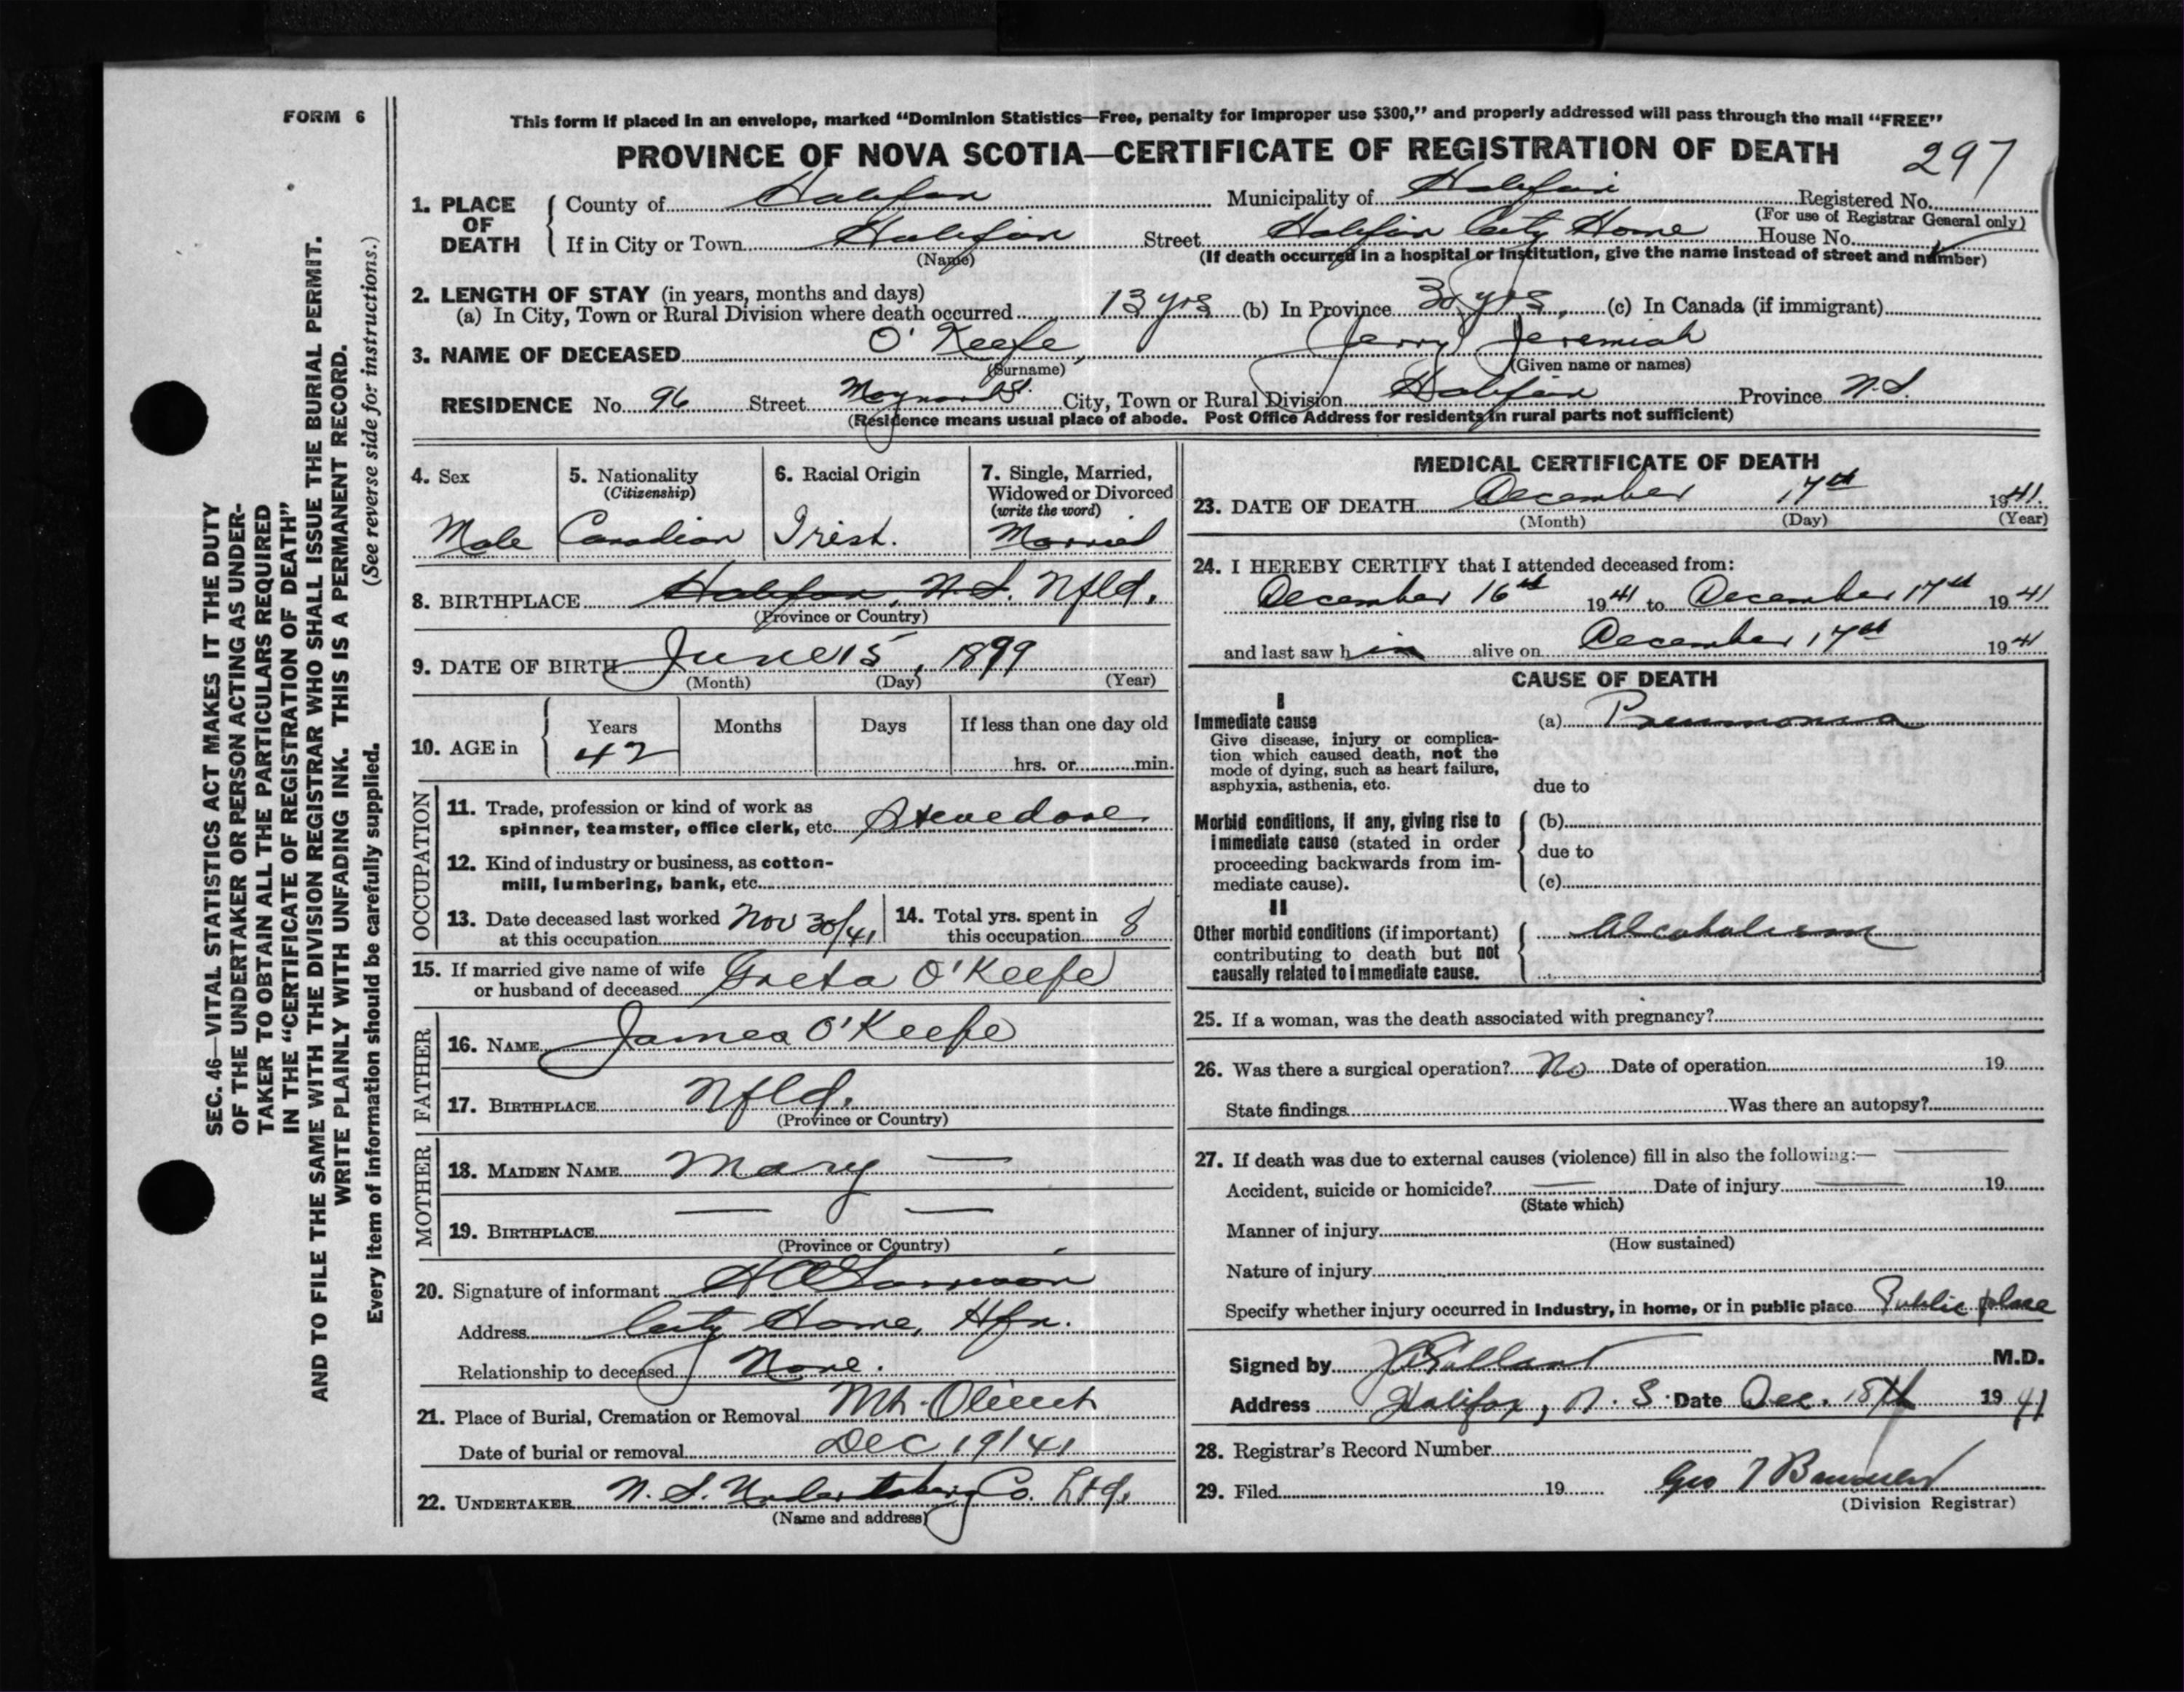 FORM 6
This form if placed in an envelope, marked "Dominion Statistics—Free, penalty for improper use $300," and properly addressed will pass through the mail "FREE"
PROVINCE OF NOVA SCOTIA—CERTIFICATE OF REGISTRATION OF DEATH 297
1. PLACE OF DEATH
County of Halifax Municipality of Halifax Registered No.
(For use of Registrar General only)
If in City or Town Halifax Street Halifax City Home House No.
(Name) (If death occurred in a hospital or institution, give the name instead of street and number)
2. LENGTH OF STAY (in years, months and days)
(a) In City, Town or Rural Division where death occurred 13 yrs (b) In Province 30 yrs, (c) In Canada (if immigrant)
3. NAME OF DECEASED O'Keefe, Jerry Jeremiah
(Surname) (Given name or names)
RESIDENCE No. 96 Street Maynard St. City, Town or Rural Division Halifax Province N.S.
(Residence means usual place of abode. Post Office Address for residents in rural parts not sufficient)
4. Sex
Male
5. Nationality
(Citizenship)
Canadian
6. Racial Origin
Irish.
7. Single, Married,
Widowed or Divorced
(write the word)
Married
8. BIRTHPLACE Halifax, N.S. Nfld.
(Province or Country)
9. DATE OF BIRTH June 15, 1899
(Month) (Day) (Year)
10. AGE in
Years Months Days If less than one day old
42 hrs. or min.
OCCUPATION
11. Trade, profession or kind of work as
spinner, teamster, office clerk, etc. Stevedore
12. Kind of industry or business, as cotton-
mill, lumbering, bank, etc.
13. Date deceased last worked
at this occupation Nov 30/41
14. Total yrs. spent in
this occupation 8
15. If married give name of wife
or husband of deceased Greta O'Keefe
FATHER
16. NAME James O'Keefe
17. BIRTHPLACE Nfld.
(Province or Country)
MOTHER
18. MAIDEN NAME Mary —
19. BIRTHPLACE — —
(Province or Country)
20. Signature of informant
Address City Home, Hfx.
Relationship to deceased None.
21. Place of Burial, Cremation or Removal Mt. Olivet
Date of burial or removal Dec 19/41
22. UNDERTAKER N.S. Undertaking Co. Ltd.
(Name and address)
MEDICAL CERTIFICATE OF DEATH
23. DATE OF DEATH December 17th 1941.
(Month) (Day) (Year)
24. I HEREBY CERTIFY that I attended deceased from:
December 16th 1941 to December 17th 1941
and last saw him alive on December 17th 1941
CAUSE OF DEATH
I
Immediate cause (a) Pneumonia
Give disease, injury or complica-
tion which caused death, not the
mode of dying, such as heart failure,
asphyxia, asthenia, etc. due to
Morbid conditions, if any, giving rise to (b)
immediate cause (stated in order
proceeding backwards from im- due to
mediate cause). (c)
II
Other morbid conditions (if important) Alcoholism
contributing to death but not
causally related to immediate cause.
25. If a woman, was the death associated with pregnancy?
26. Was there a surgical operation? No Date of operation 19
State findings Was there an autopsy?
27. If death was due to external causes (violence) fill in also the following:—
Accident, suicide or homicide? — Date of injury — 19
(State which)
Manner of injury
(How sustained)
Nature of injury
Specify whether injury occurred in industry, in home, or in public place Public place
Signed by M.D.
Address Halifax, N.S. Date Dec. 18th 1941
28. Registrar's Record Number
29. Filed 19 Geo
(Division Registrar)
SEC. 46—VITAL STATISTICS ACT MAKES IT THE DUTY
OF THE UNDERTAKER OR PERSON ACTING AS UNDER-
TAKER TO OBTAIN ALL THE PARTICULARS REQUIRED
IN THE "CERTIFICATE OF REGISTRATION OF DEATH"
AND TO FILE THE SAME WITH THE DIVISION REGISTRAR WHO SHALL ISSUE THE BURIAL PERMIT.
WRITE PLAINLY WITH UNFADING INK. THIS IS A PERMANENT RECORD.
Every item of information should be carefully supplied. (See reverse side for instructions.)